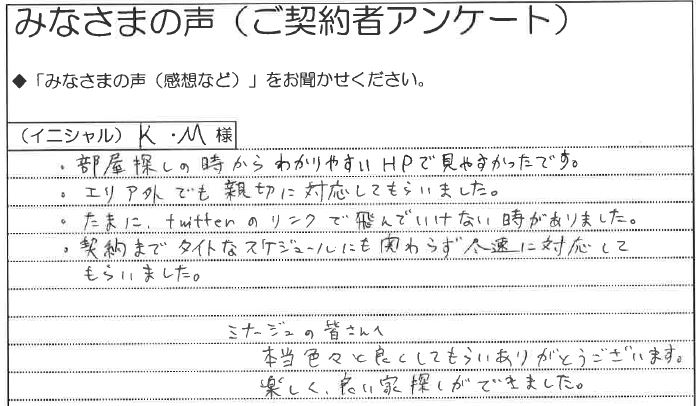 みなさまの声（ご契約者アンケート）
◆「みなさまの声（感想など）」をお聞かせください。
（イニシャル）K・M様
・部屋探しの時からわかりやすいHPで見やすかったです。
・エリア外でも親切に対応してもらいました。
・たまに、twitterのリンクで飛んでいけない時がありました。
・契約までタイトなスケジュールにも関わらず早速に対応して
もらいました。
ミナージュの皆さんへ
本当色々と良くしてもらいありがとうございます。
楽しく、良い家探しができました。